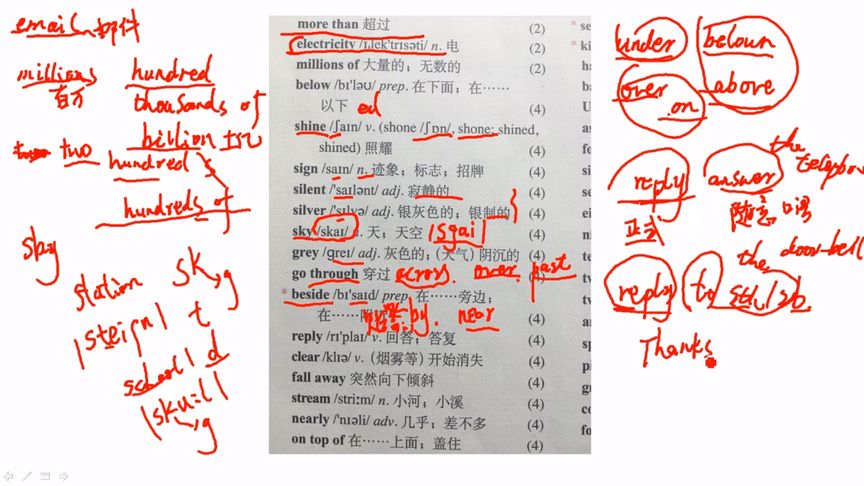 email 邮件
millions
百万
hundred
thousands of
billion 十亿
two
hundred
hundreds of
station
sk
g
t
school
d
g
more than 超过 (2)
electricity /ɪˌlek'trɪsəti/ n. 电 (2)
millions of 大量的；无数的 (2)
below /bɪ'ləʊ/ prep. 在下面；在……
以下 (4)
ed
shine /ʃaɪn/ v. (shone /ʃɒn/, shone; shined,
shined) 照耀 (4)
sign /saɪn/ n. 迹象；标志；招牌 (4)
silent /'saɪlənt/ adj. 寂静的 (4)
silver /'sɪlvə/ adj. 银灰色的；银制的 (4)
sky /skaɪ/ n. 天；天空 (4)
/sgai/
grey /greɪ/ adj. 灰色的；(天气) 阴沉的 (4)
go through 穿过 (4)
across. over. past
* beside /bɪ'saɪd/ prep. 在……旁边；
在……附近 (4)
by. near
reply /rɪ'plaɪ/ v. 回答；答复 (4)
clear /klɪə/ v. (烟雾等) 开始消失 (4)
fall away 突然向下倾斜 (4)
stream /striːm/ n. 小河；小溪 (4)
nearly /'nɪəli/ adv. 几乎；差不多 (4)
on top of 在……上面；盖住 (4)
* se
* ki
under
below
over
on
above
reply
正式
answer
the
telephone
随意 口语
the door-bell
reply to sth/sb
Thanks